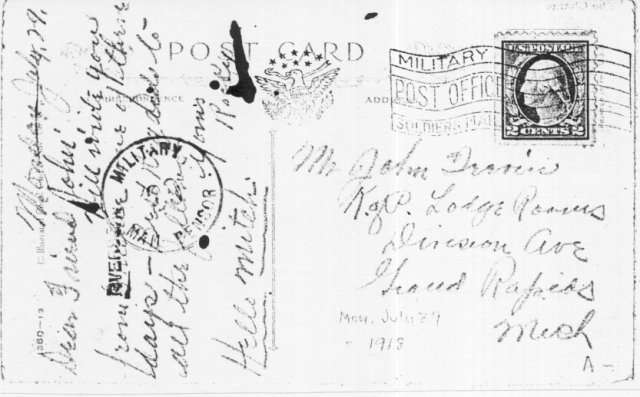 POST CARD
Monday July 29.
Dear Friend John:
Will write you
from one of these
days — Good bye to
all the fellows. Yours
Rocky
Hello Mitch.
MILITARY
MAIL
CENSOR
1360-13
ADDRESS
MILITARY
POST OFFICE
SOLDIERS MAIL
U.S. POSTAGE
2 CENTS 2
Mr John Irwin
K of P. Lodge Rooms
Division Ave
Grand Rapids
Mich
Mon. July 29
- 1918
A-